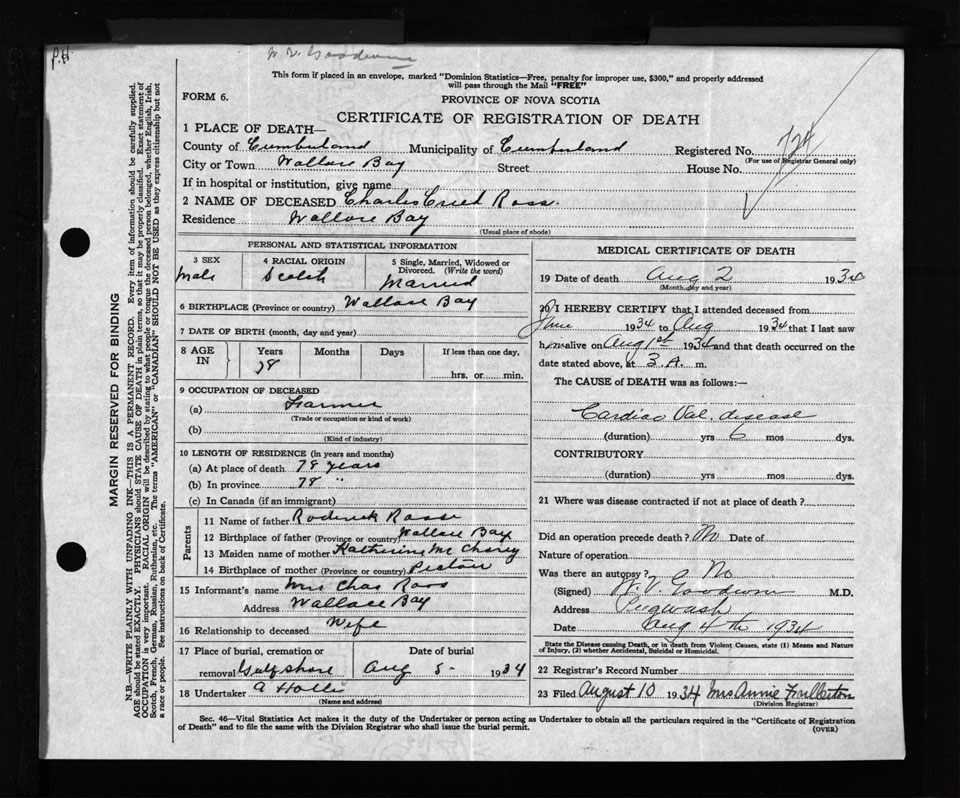 P.H.
W. V. Goodwin
This form if placed in an envelope, marked "Dominion Statistics—Free, penalty for improper use, $300," and properly addressed
will pass through the Mail "FREE"
FORM 6.
PROVINCE OF NOVA SCOTIA
CERTIFICATE OF REGISTRATION OF DEATH
1 PLACE OF DEATH—
County of Cumberland Municipality of Cumberland Registered No. 724
(For use of Registrar General only)
City or Town Wallace Bay Street House No.
If in hospital or institution, give name
2 NAME OF DECEASED Charles Ross.
Residence Wallace Bay
(Usual place of abode)
PERSONAL AND STATISTICAL INFORMATION
3 SEX
Male
4 RACIAL ORIGIN
Scotch
5 Single, Married, Widowed or
Divorced. (Write the word)
Married
6 BIRTHPLACE (Province or County) Wallace Bay
7 DATE OF BIRTH (month, day and year)
8 AGE
IN
Years Months Days If less than one day,
78
hrs. or min.
9 OCCUPATION OF DECEASED
(a) Farmer
(Trade or occupation or kind of work)
(b)
(Kind of industry)
10 LENGTH OF RESIDENCE (in years and months)
(a) At place of death 78 years
(b) In province 78 "
(c) In Canada (if an immigrant)
Parents
11 Name of father Roderick Ross
12 Birthplace of father (Province or country) Wallace Bay
13 Maiden name of mother Katherine
14 Birthplace of mother (Province or country) Pictou
15 Informant's name Mrs Chas Ross
Address Wallace Bay
16 Relationship to deceased Wife
17 Place of burial, cremation or
removal Gulf Shore
Date of burial
Aug 5- 1934
18 Undertaker A Hollis
(Name and address)
MEDICAL CERTIFICATE OF DEATH
19 Date of death Aug 2 1934
(Month, day and year)
20 I HEREBY CERTIFY that I attended deceased from
June 1934 to Aug 1934 that I last saw
him alive on Aug 1st 1934 and that death occurred on the
date stated above, at 3. A. m.
The CAUSE of DEATH was as follows:—
Cardiac Val. disease
(duration) yrs 6 mos dys.
CONTRIBUTORY
(duration) yrs mos dys.
21 Where was disease contracted if not at place of death?
Did an operation precede death? No Date of
Nature of operation
Was there an autopsy? No
(Signed) W. V. Goodwin M.D.
Address Pugwash
Date Aug 4th, 1934
State the Disease causing Death, or in death from Violent Causes, state (1) Means and Nature
of Injury, (2) whether Accidental, Suicidal or Homicidal.
22 Registrar's Record Number
23 Filed August 10 1934 Mrs Annie Fullerton
(Division Registrar)
Sec. 46—Vital Statistics Act makes it the duty of the Undertaker or person acting as Undertaker to obtain all the particulars required in the "Certificate of Registration
of Death" and to file the same with the Division Registrar who shall issue the burial permit.
(OVER)
MARGIN RESERVED FOR BINDING
N.B.—WRITE PLAINLY WITH UNFADING INK—THIS IS A PERMANENT RECORD. Every item of information should be carefully supplied.
AGE should be stated EXACTLY. PHYSICIANS should STATE CAUSE OF DEATH in plain terms, so that it may be properly classified. Exact statement of
OCCUPATION is very important. RACIAL ORIGIN will be described by stating to what people or tongue the deceased person belonged, whether English, Irish,
Scotch, French, German, Russian, Ruthenian, etc. The terms "AMERICAN" or "CANADIAN" SHOULD NOT BE USED as they express citizenship but not
a race or people. See instructions on back of Certificate.